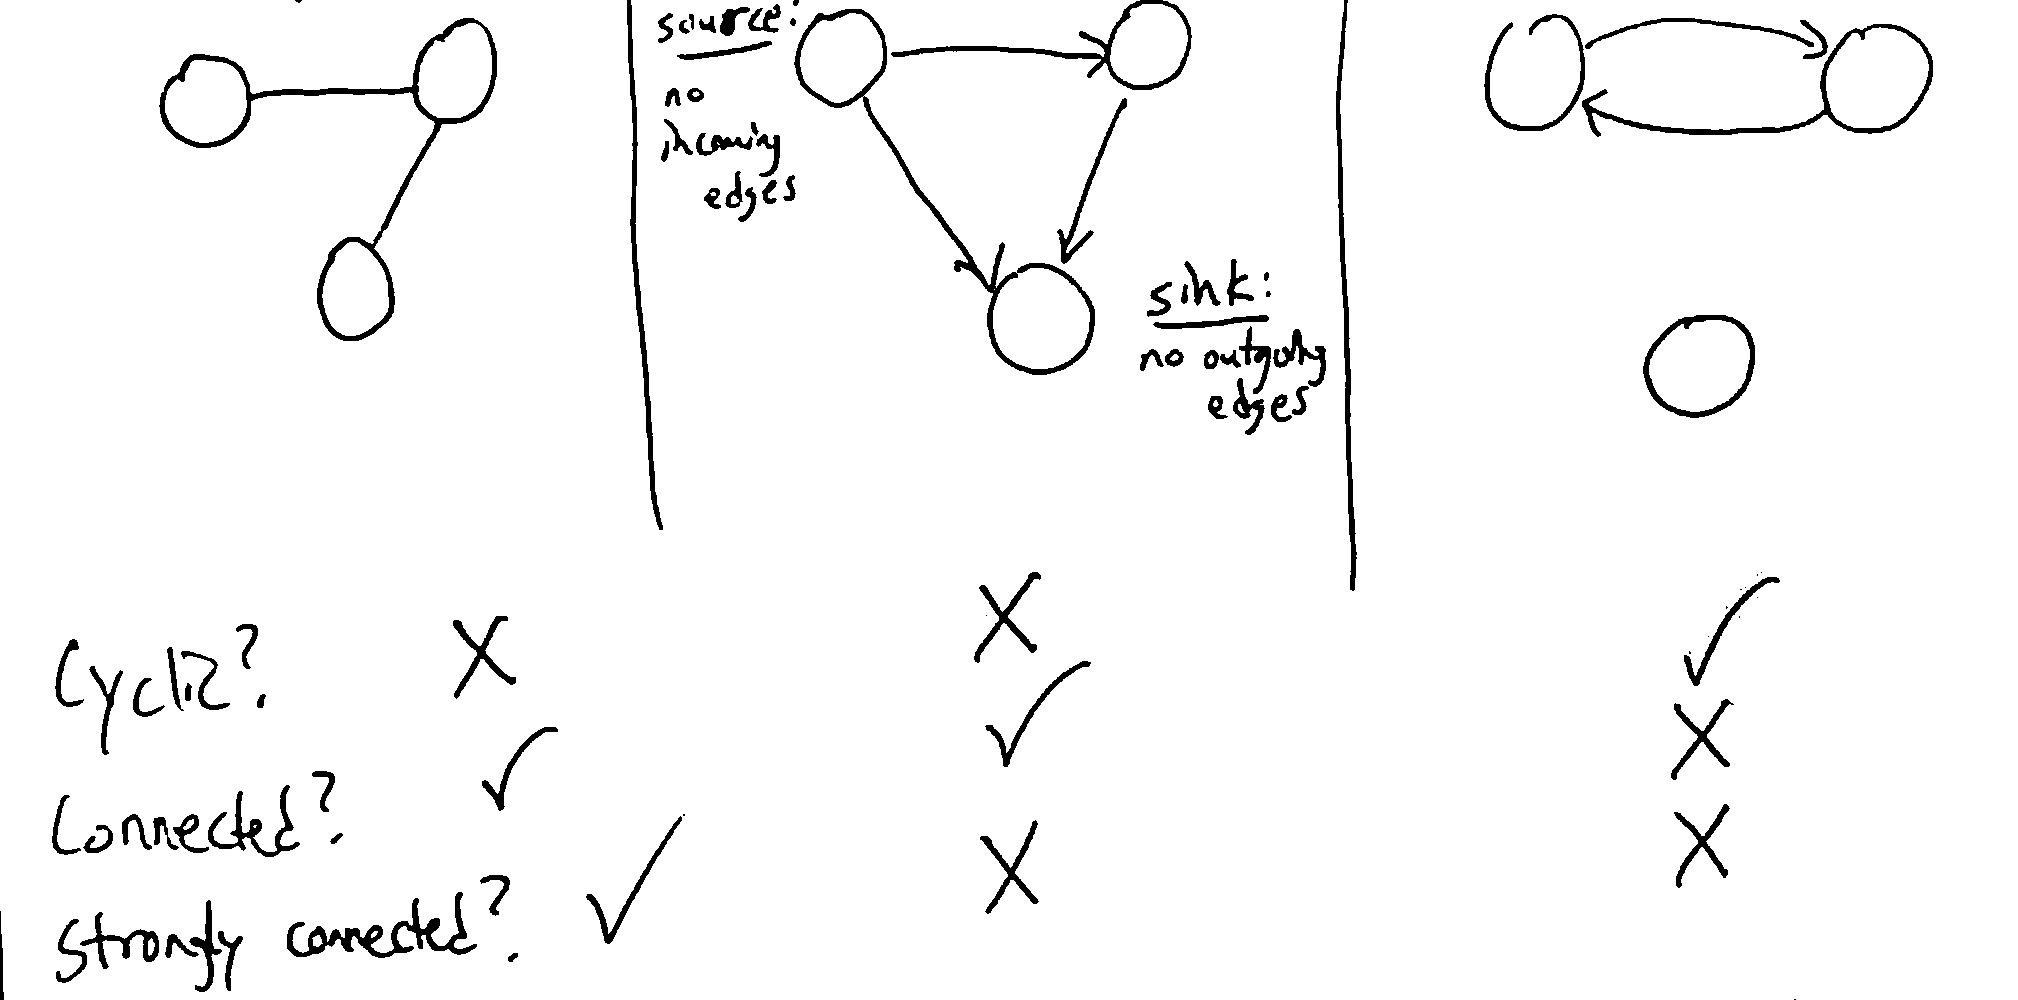 source:
no
incoming
edges
sink:
no outgoing
edges
Cyclic?
Connected?
Strongly connected?